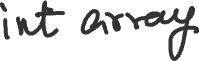 int array